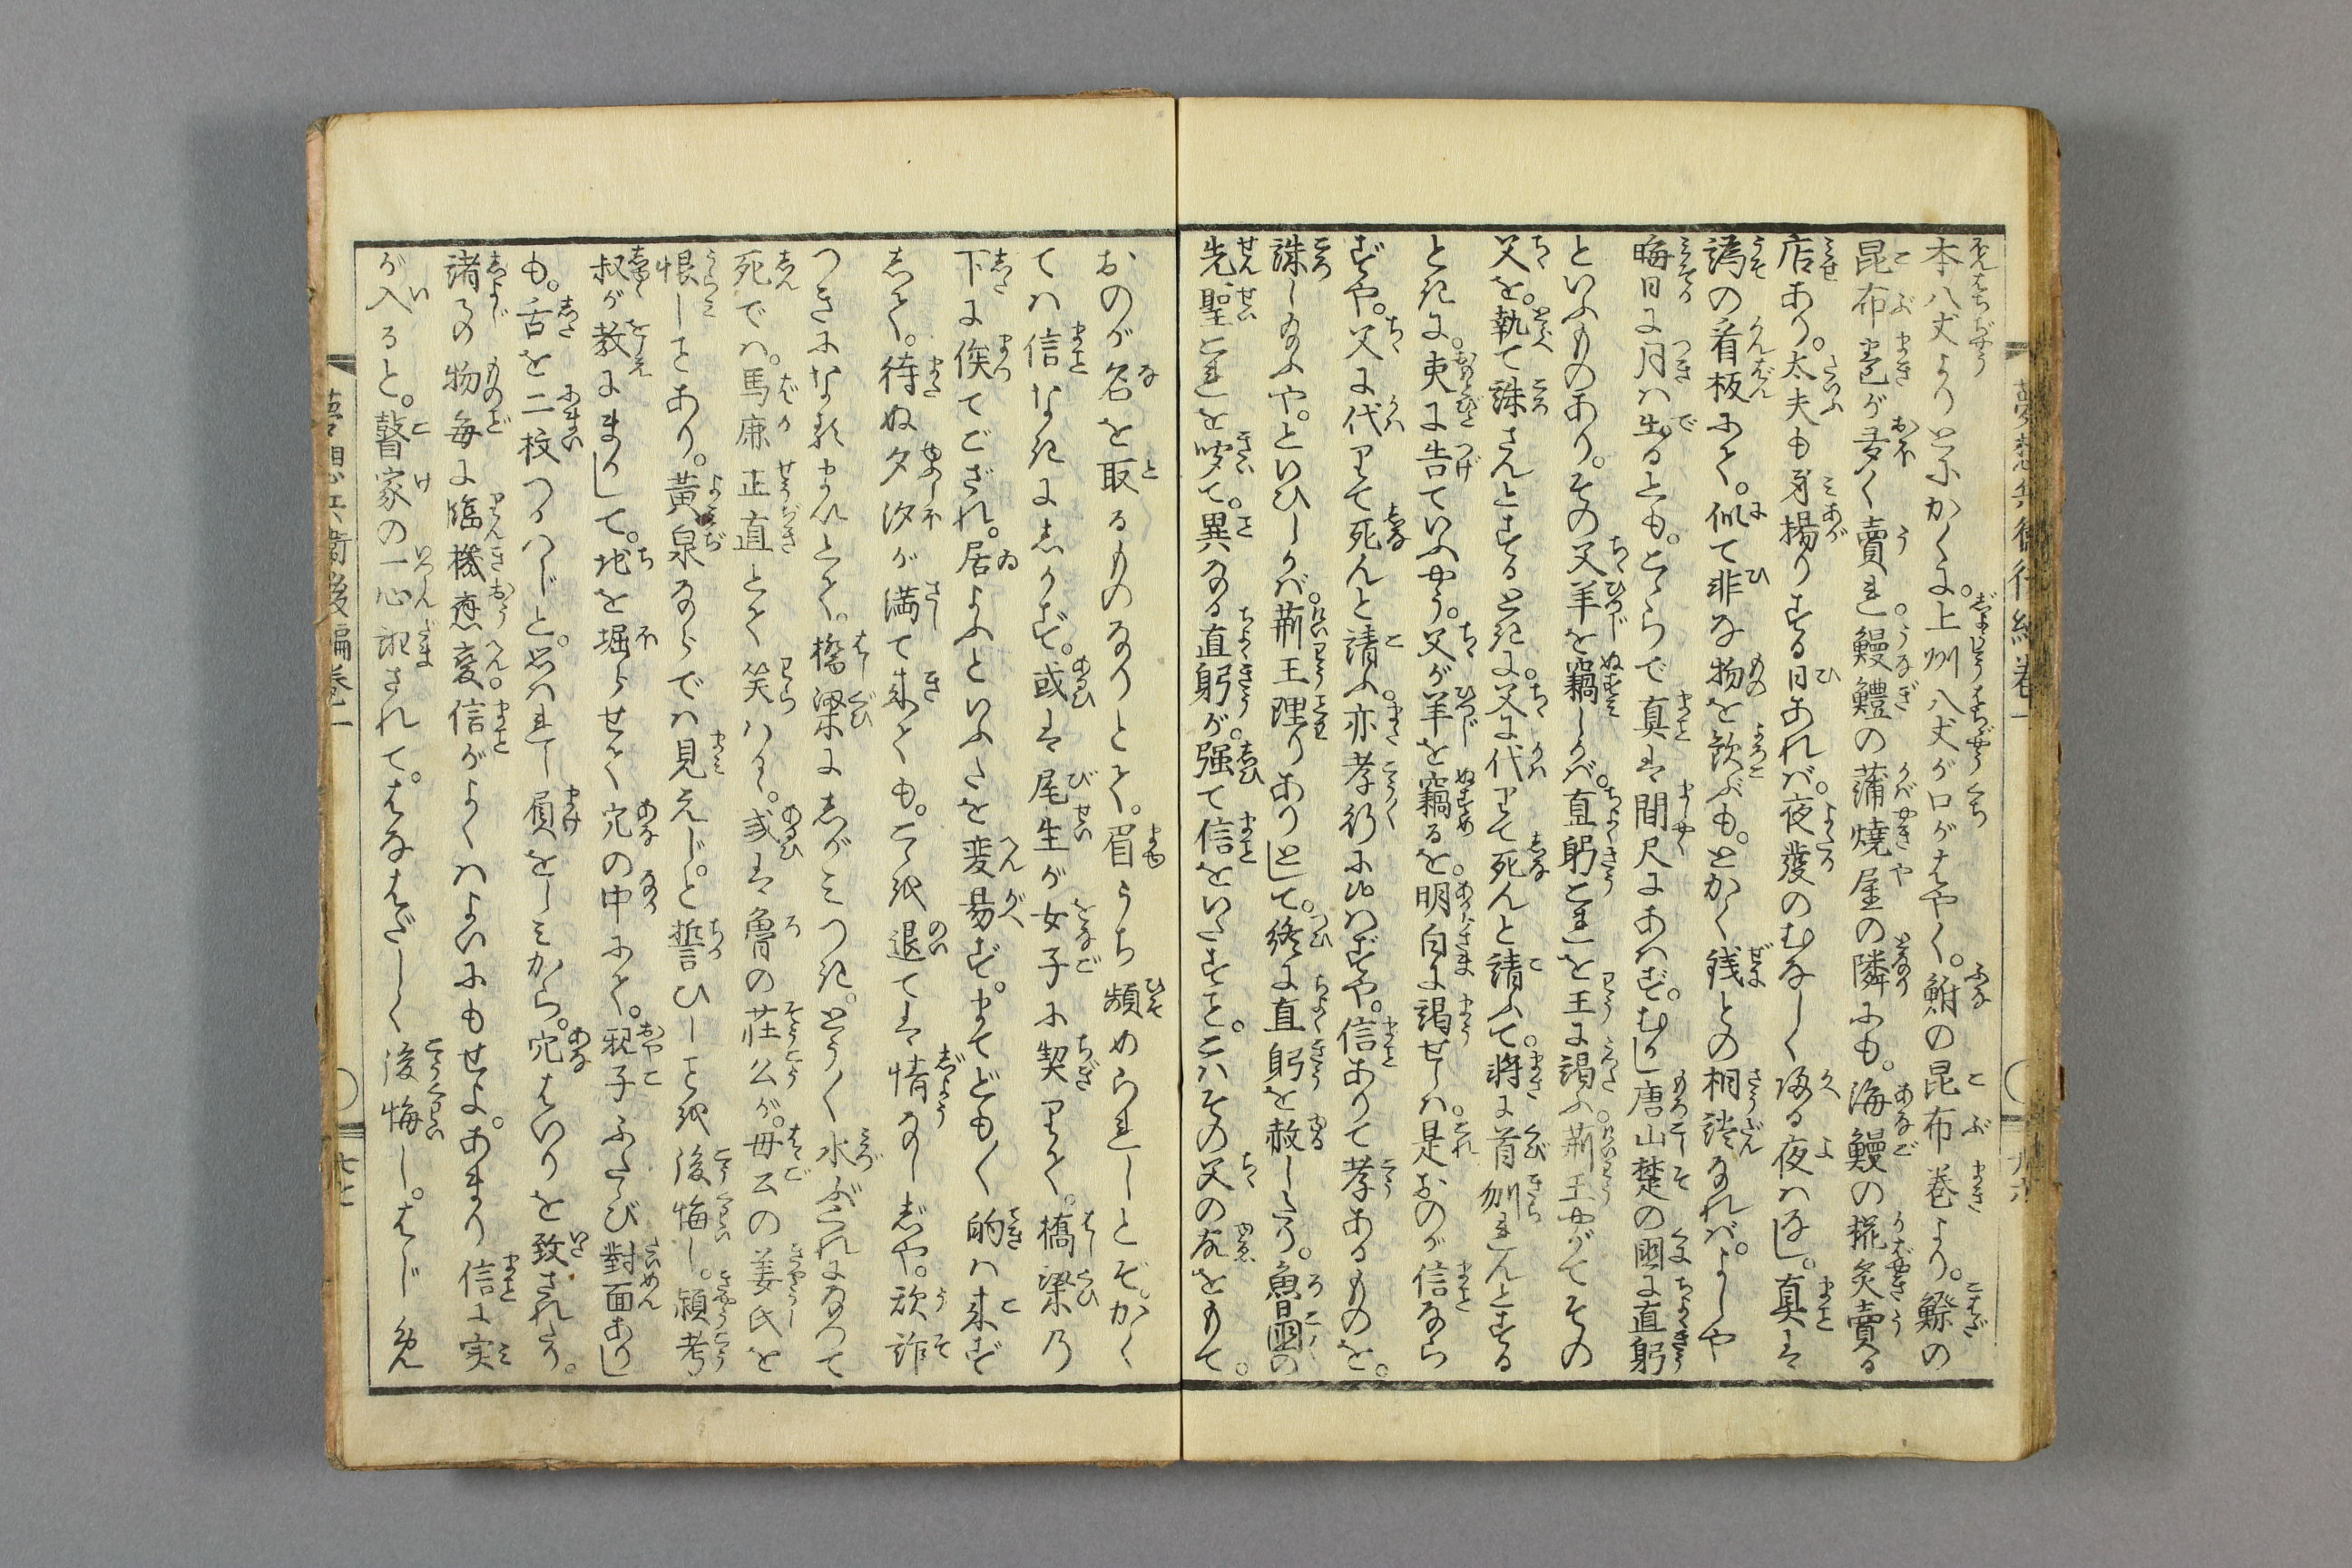 本八丈よりとにかくに。上州八丈が口がはやく。鮒の昆布巻より。鰶の
昆布巻が多く賣れ。鰻鱧の蒲焼屋の隣にも。海鰻の椛炙賣る
店あり。太夫も身揚りする日あれば。夜發のむなしく帰る夜はなし。真は
譌の看板にて。似て非な物を歓ぶも。とかく銭との相談なれば。よしや
晦日に月は生るとも。こゝらで真は間尺にあはず。むかし唐山楚の國に直躬
といふものあり。その父羊を竊しかば。直躬これを王に謁ふ。荊王やがてその
父を。執て誅さんとするときに。父に代りて死んと請ふて。將に首刎れんとする
ときに。吏に告ていふやう。父が羊を竊るを。明白に謁せしは。是おのが信なら
ずや。父に代りて死んと請ふ。亦孝行にはずや。信ありて孝あるものを。
誅し給ふや。といひしかば。荊王理りありとして。終に直躬を赦したり。魯國の
先聖これを咲て。異なる直躬が。强て信をいたすこと。こはその父の故をもて。
おのが名を取るものなりとて。眉うち顰められしとぞ。かく
ては信なきにしかず。或は尾生が女子に契りて。橋梁乃
下に俟てござれ。居よふといふたを変易ず。まてども〳〵的は来ず
して。待ぬ夕汐が満て来ても。こゝ退ては情なしじや。欺詐
つきになるまいとて。橋梁にしがみつき。とう〳〵水ぶくれになつて
死では。馬鹿正直とて笑はん。或は魯の莊公が。母公の姜氏を
恨しことあり。黄泉ならでは見えじ。と誓ひしこと後悔し。頴考
叔が教にまかして。地を堀らせて穴の中にて。親子ふたゝび對面あり
も。舌を二枚つかはじと。思はれし屓をしみから。穴はいりを致されたり。
諸事の物毎に臨機應変。信がよくはよいにもせよ。あまり信に実
が入ると。瞽家の一心計され
て。はなはだしく後悔し。はじ免